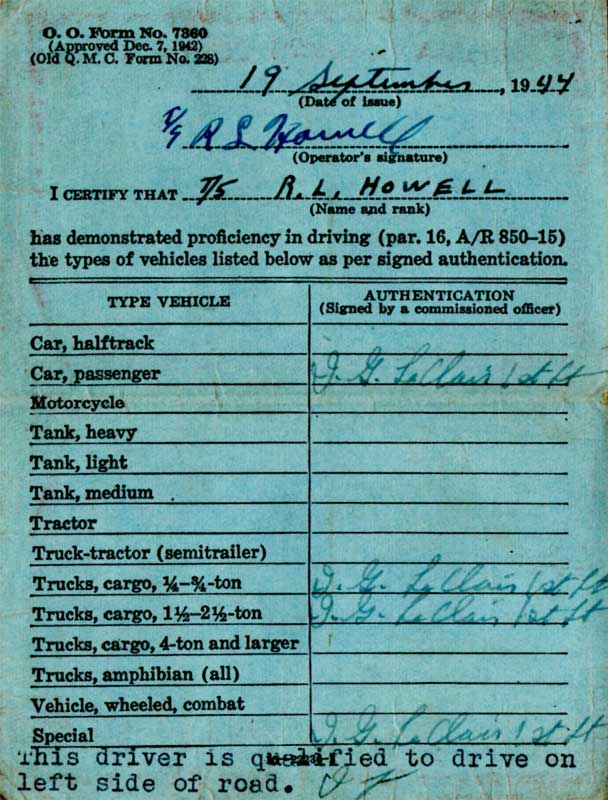 O. O. Form No. 7360
(Approved Dec. 7, 1942)
(Old Q. M. C. Form No. 228)
19 September, 1944
(Date of issue)
T/5 R L Howell
(Operator's signature)
I CERTIFY THAT T/5 R. L. HOWELL
(Name and rank)
has demonstrated proficiency in driving (par. 16, A/R 850–15)
the types of vehicles listed below as per signed authentication.
TYPE VEHICLE AUTHENTICATION
(Signed by a commissioned officer)
Car, halftrack
Car, passenger J. G. LaClair 1st Lt
Motorcycle
Tank, heavy
Tank, light
Tank, medium
Tractor
Truck-tractor (semitrailer)
Trucks, cargo, ¼–¾-ton J. G. LaClair 1st Lt
Trucks, cargo, 1½–2½-ton J. G. LaClair 1st Lt
Trucks, cargo, 4-ton and larger
Trucks, amphibian (all)
Vehicle, wheeled, combat
Special J. G. LaClair 1st Lt
This driver is qualified to drive on
left side of road.